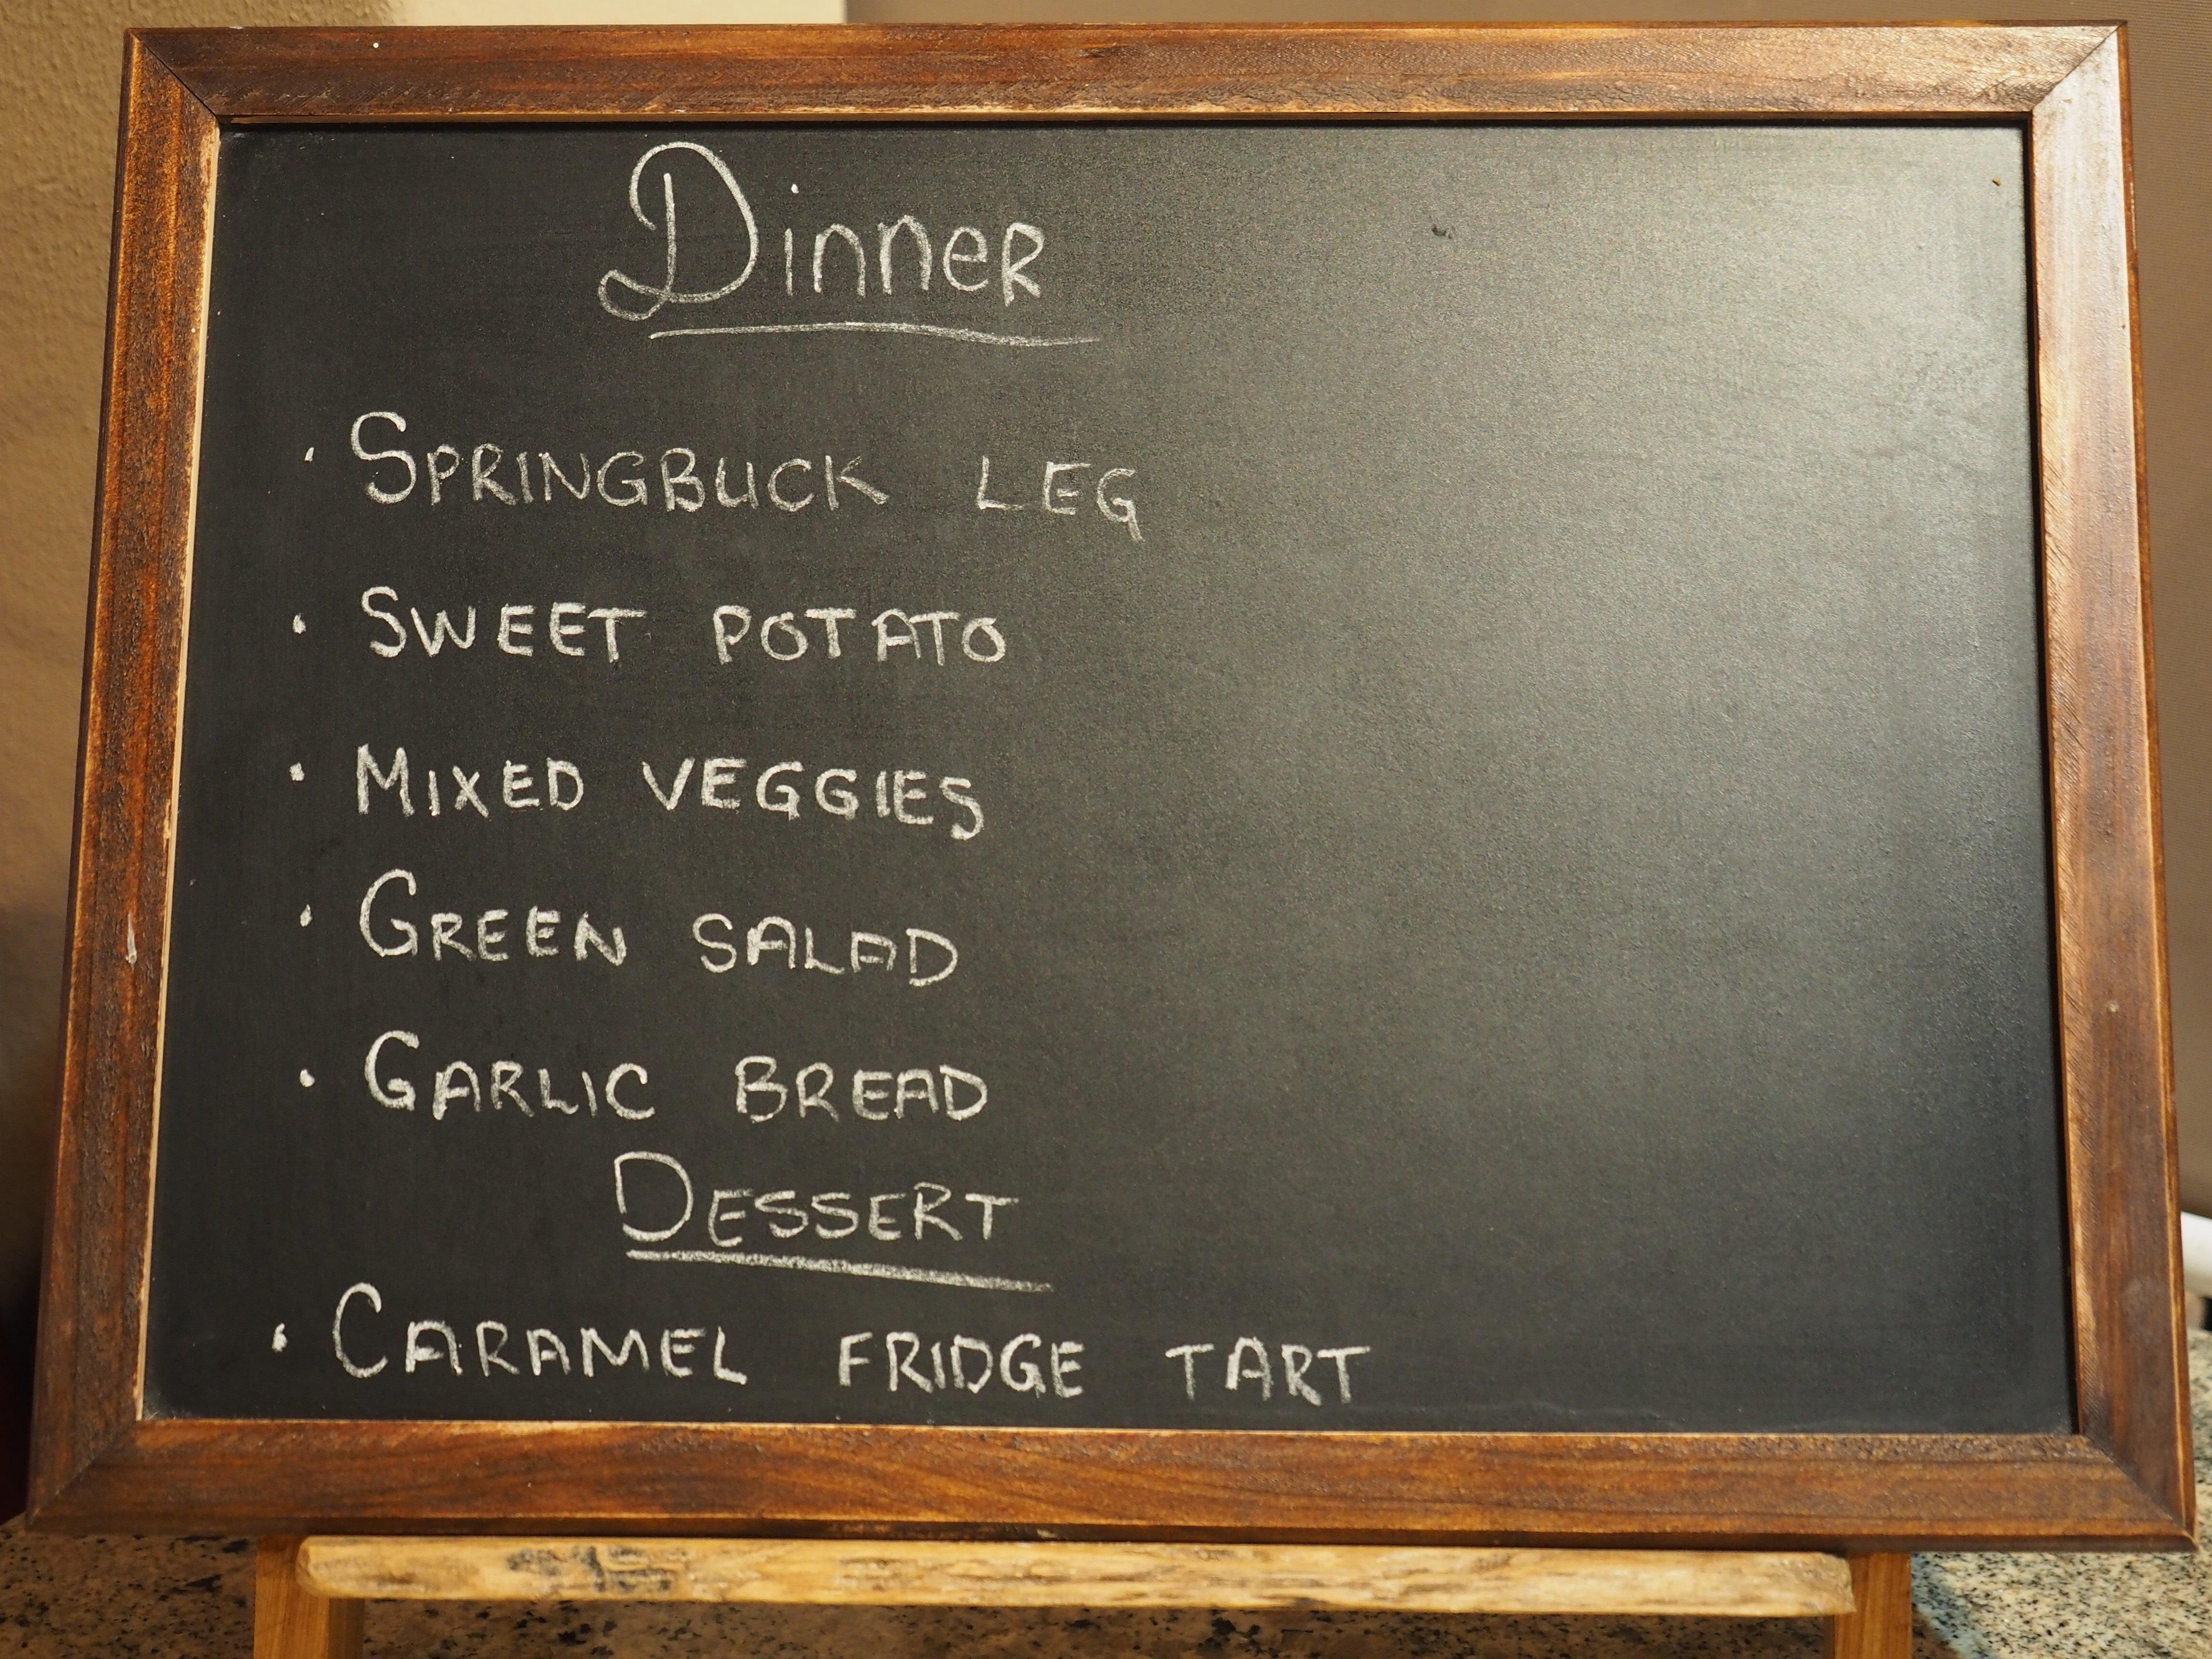 Dinner
• SPRINGBUCK LEG
• SWEET POTATO
• MIXED VEGGIES
• GREEN SALAD
• GARLIC BREAD
DESSERT
• CARAMEL FRIDGE TART